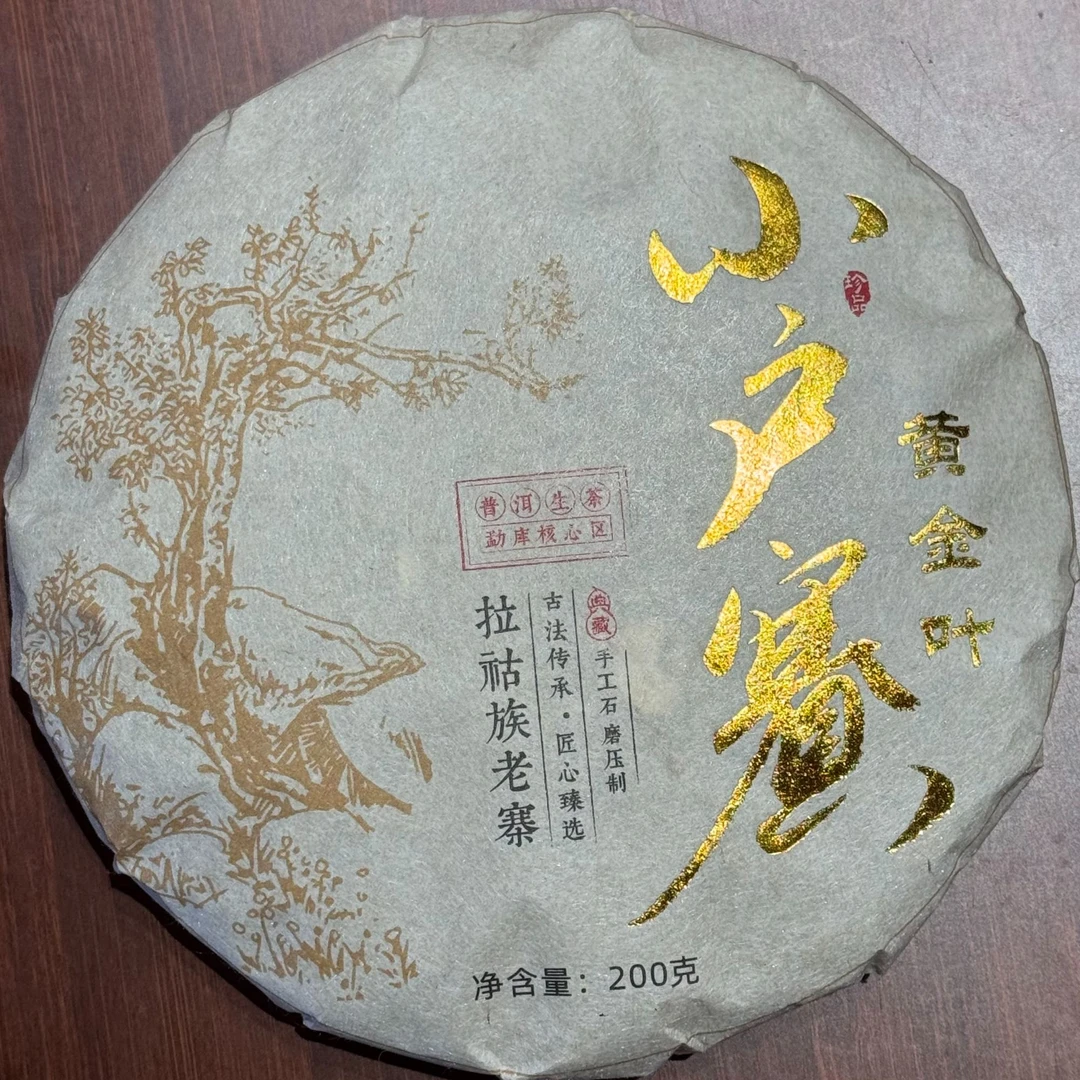 小户赛
珍品
黄金叶
普洱生茶
勐库核心区
典藏
手工石磨压制
古法传承·匠心臻选
拉祜族老寨
净含量：200克